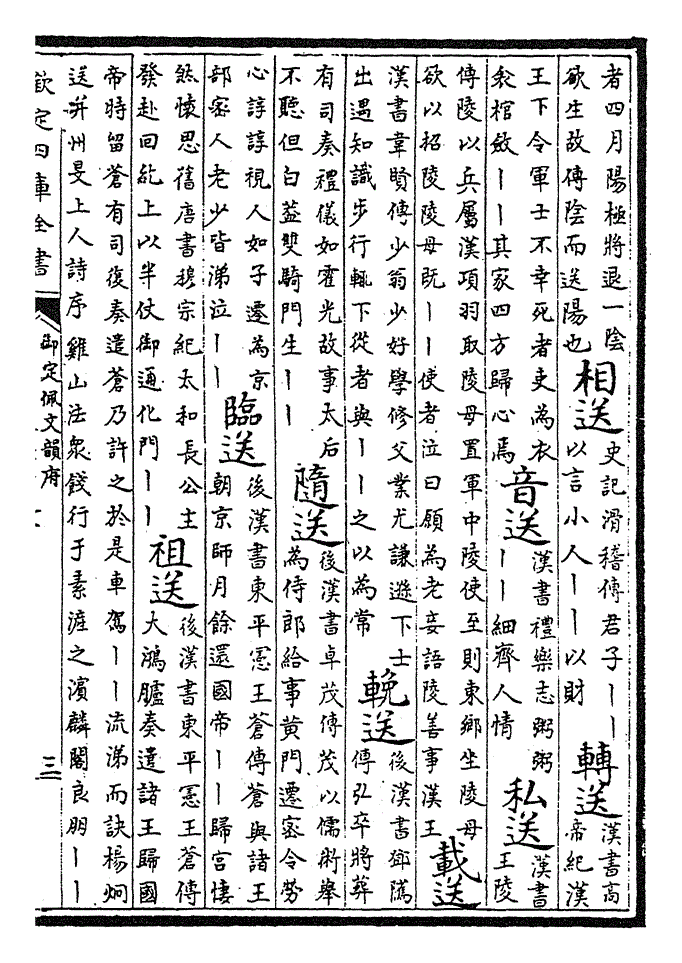 者四月陽極將退一陰
欲生故傳陰而送陽也
相送
史記滑稽傳君子丨丨
以言小人丨丨以財
轉送
漢書高
帝紀漢
王下令軍士不幸死者吏為衣
衾棺斂丨丨其家四方歸心焉
音送
漢書禮樂志粥粥
丨丨細齊人情
私送
漢書
王陵
傳陵以兵屬漢項羽取陵母置軍中陵使至則東鄉坐陵母
欲以招陵陵母既丨丨使者泣曰願為老妾語陵善事漢王
載送
漢書韋賢傳少翁少好學修父業尤謙遜下士
出遇知識步行輒下從者與丨丨之以為常
輓送
後漢書鄧隲
傳弘卒將葬
有司奏禮儀如霍光故事太后
不聽但白蓋雙騎門生丨丨
隨送
後漢書卓茂傳茂以儒術舉
為侍郎給事黄門遷密令勞
心諄諄視人如子遷為京
部密人老少皆涕泣丨丨
臨送
後漢書東平憲王蒼傳蒼與諸王
朝京師月餘還國帝丨丨歸宫悽
然懷思舊唐書穆宗紀太和長公主
發赴回紇上以半仗御通化門丨丨
祖送
後漢書東平憲王蒼傳
大鴻臚奏遣諸王歸國
帝時留蒼有司復奏遣蒼乃許之於是車駕丨丨流涕而訣楊炯
送并州旻上人詩序雞山法衆餞行于素滻之濱麟閣良朋丨丨
欽定四庫全書
御定佩文韻府
三